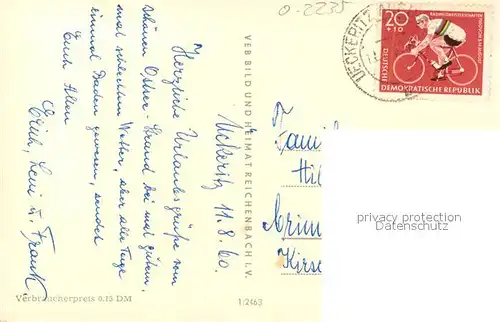 0-2235
Ückeritz, 11. 8. 60.
Herzliche Urlaubsgrüße vom
schönen Ostsee-Strand bei mal gutem,
mal schlechtem Wetter, aber alle Tage
einmal baden gewesen, sendet
Euch Allen
Erich, Leni u. Frank
VEB BILD UND HEIMAT REICHENBACH I. V.
Verbraucherpreis 0,15 DM
1/2463
UECKERITZ
20
+10
RADWELTMEISTERSCHAFTEN
DEUTSCHE
DEMOKRATISCHE REPUBLIK
Famil
Hil
Crim
Kirsc
privacy protection
Datenschutz